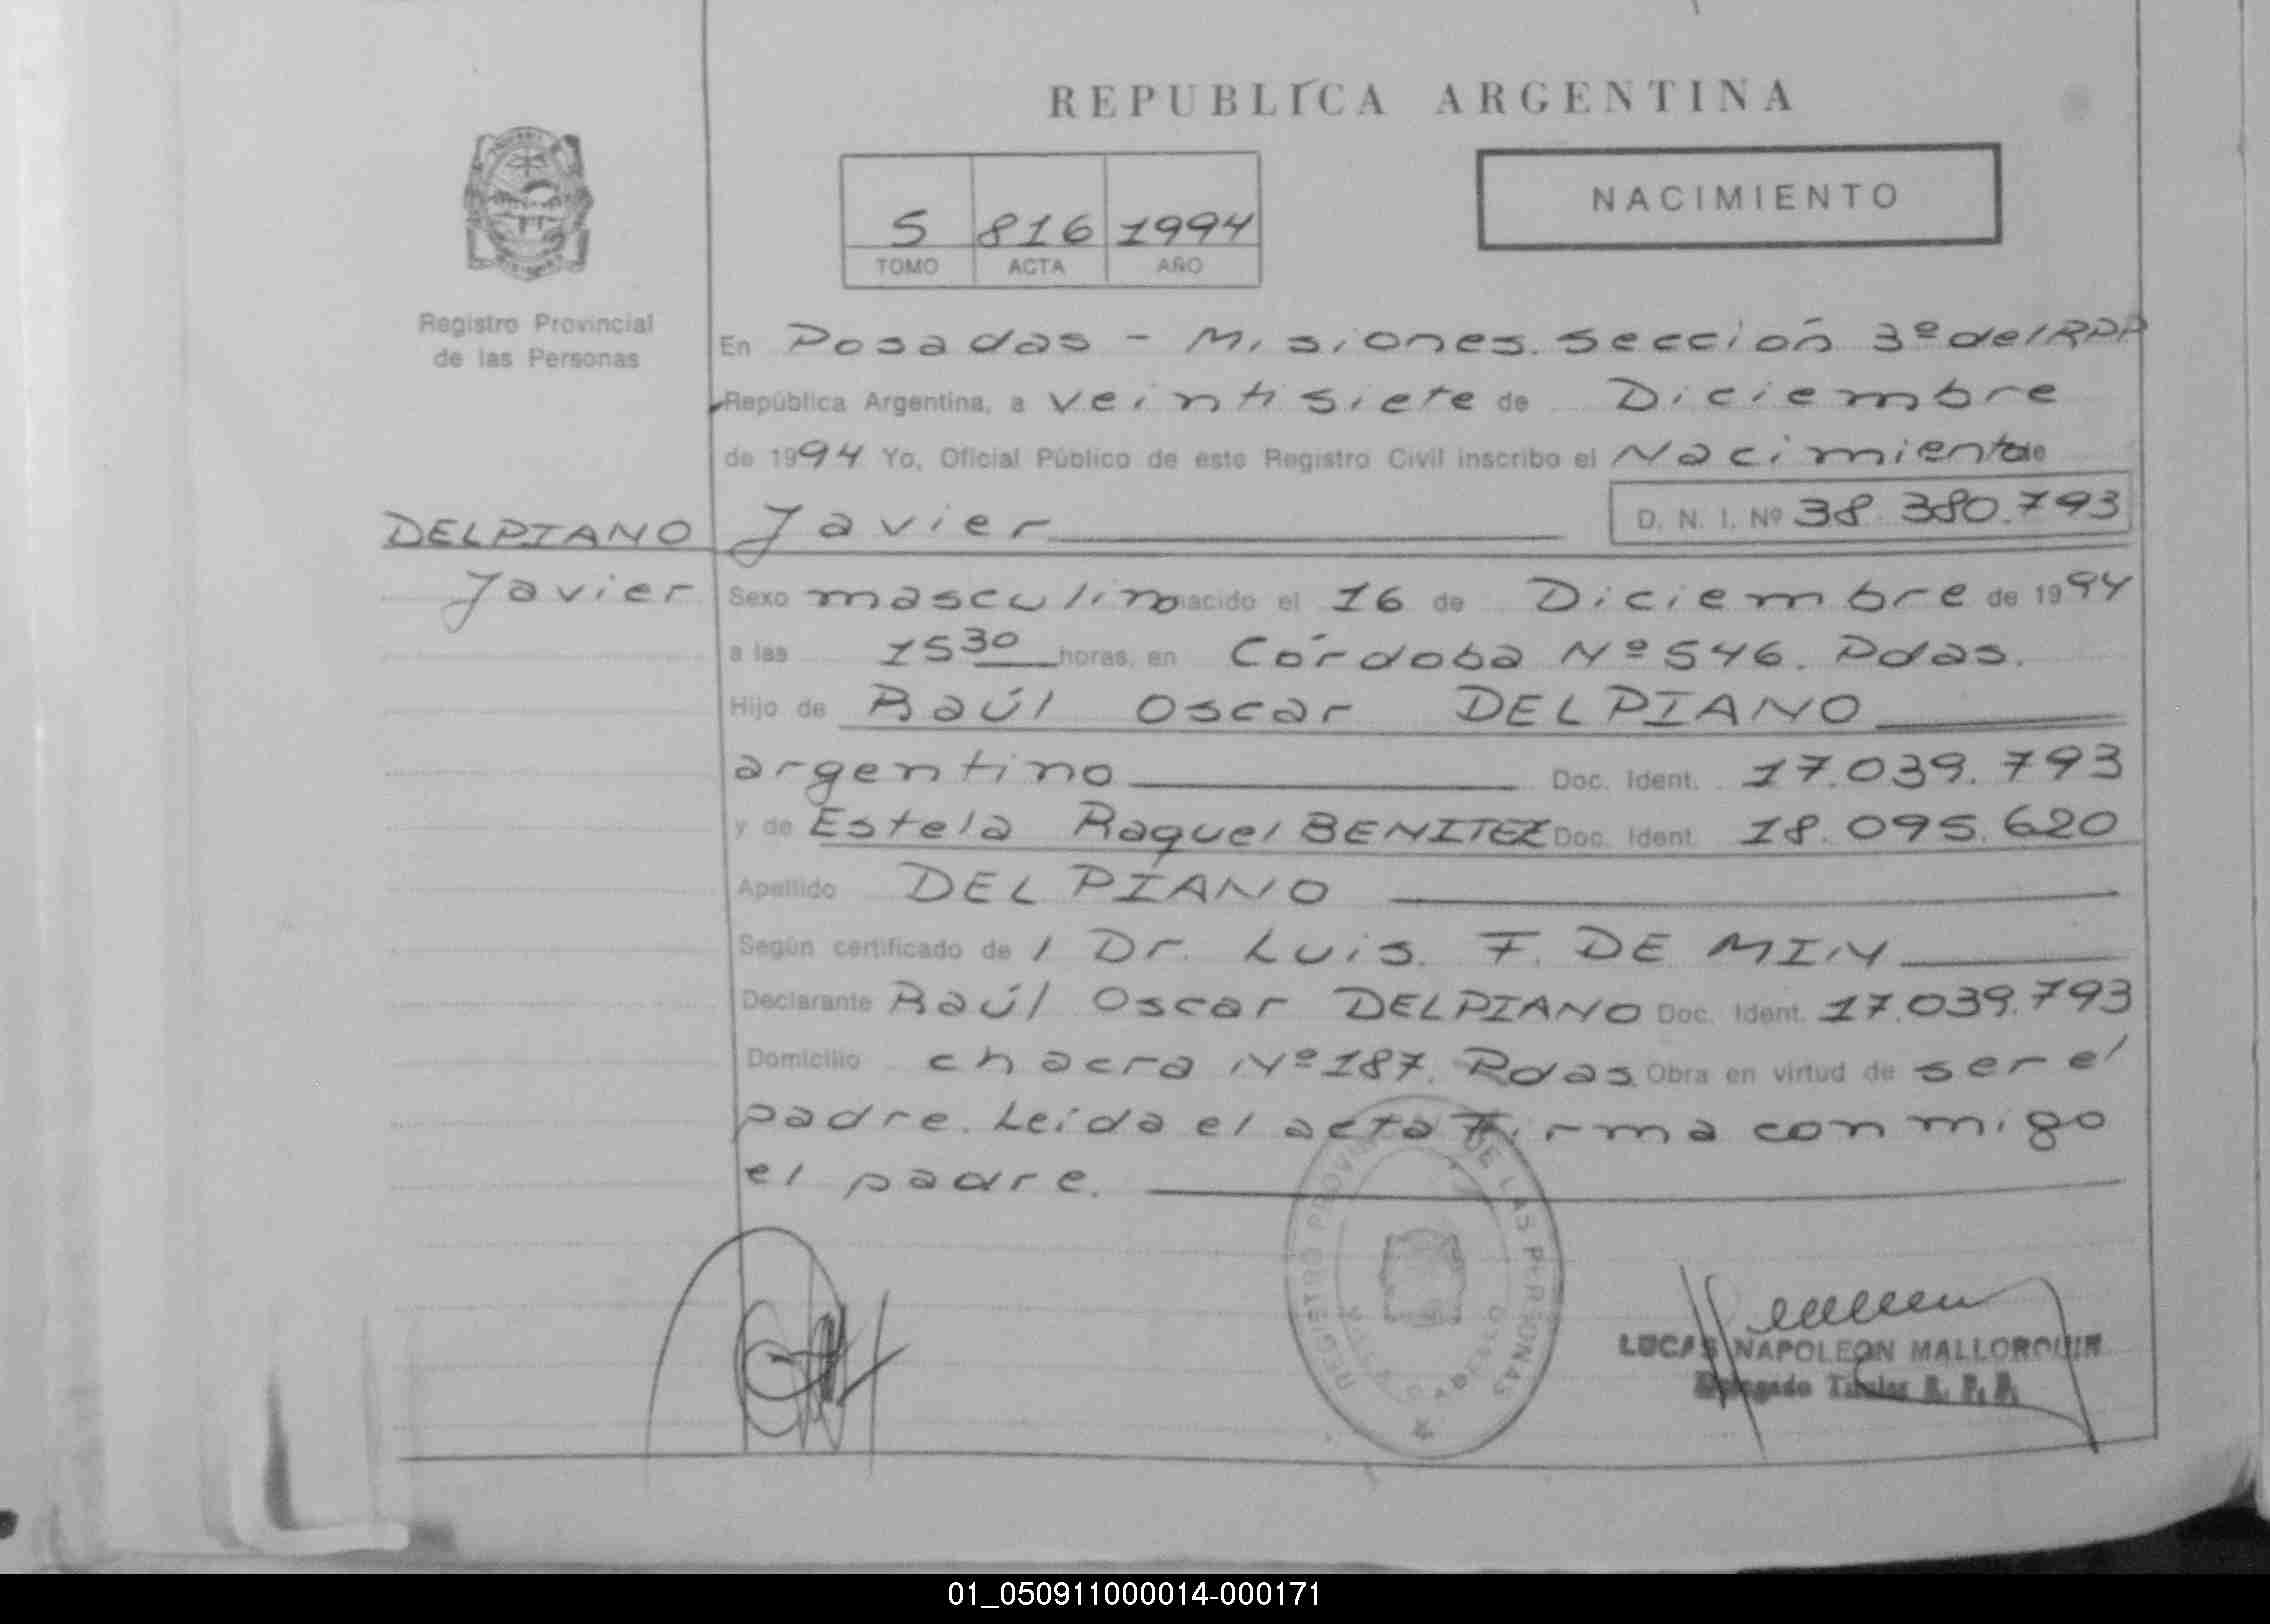 REPUBLICA ARGENTINA
NACIMIENTO
5 816 1994
TOMO ACTA AÑO
Registro Provincial
de las Personas
En Posadas - Misiones. Sección 3º del RPP
República Argentina, a veintisiete de Diciembre
de 1994 Yo, Oficial Público de este Registro Civil inscribo el Nacimiento de
DELPIANO Javier D. N. I. Nº 38.380.793
Javier
Sexo masculino nacido el 16 de Diciembre de 1994
a las 15 30 horas, en Córdoba Nº 546. Pdas.
Hijo de Raúl Oscar DELPIANO
argentino Doc. Ident. 17.039.793
y de Estela Raquel BENITEZ Doc. Ident. 18.095.620
Apellido DELPIANO
Según certificado del Dr. Luis. F. DE MIN
Declarante Raúl Oscar DELPIANO Doc. Ident. 17.039.793
Domicilio chacra Nº 187. Pdas. Obra en virtud de ser el
padre. Leída el acta Firma conmigo
el padre.
REGISTRO PROVINCIAL DE LAS PERSONAS
LUCAS NAPOLEON MALLORQUIN
Delegado Titular R. P. P.
01_050911000014-000171